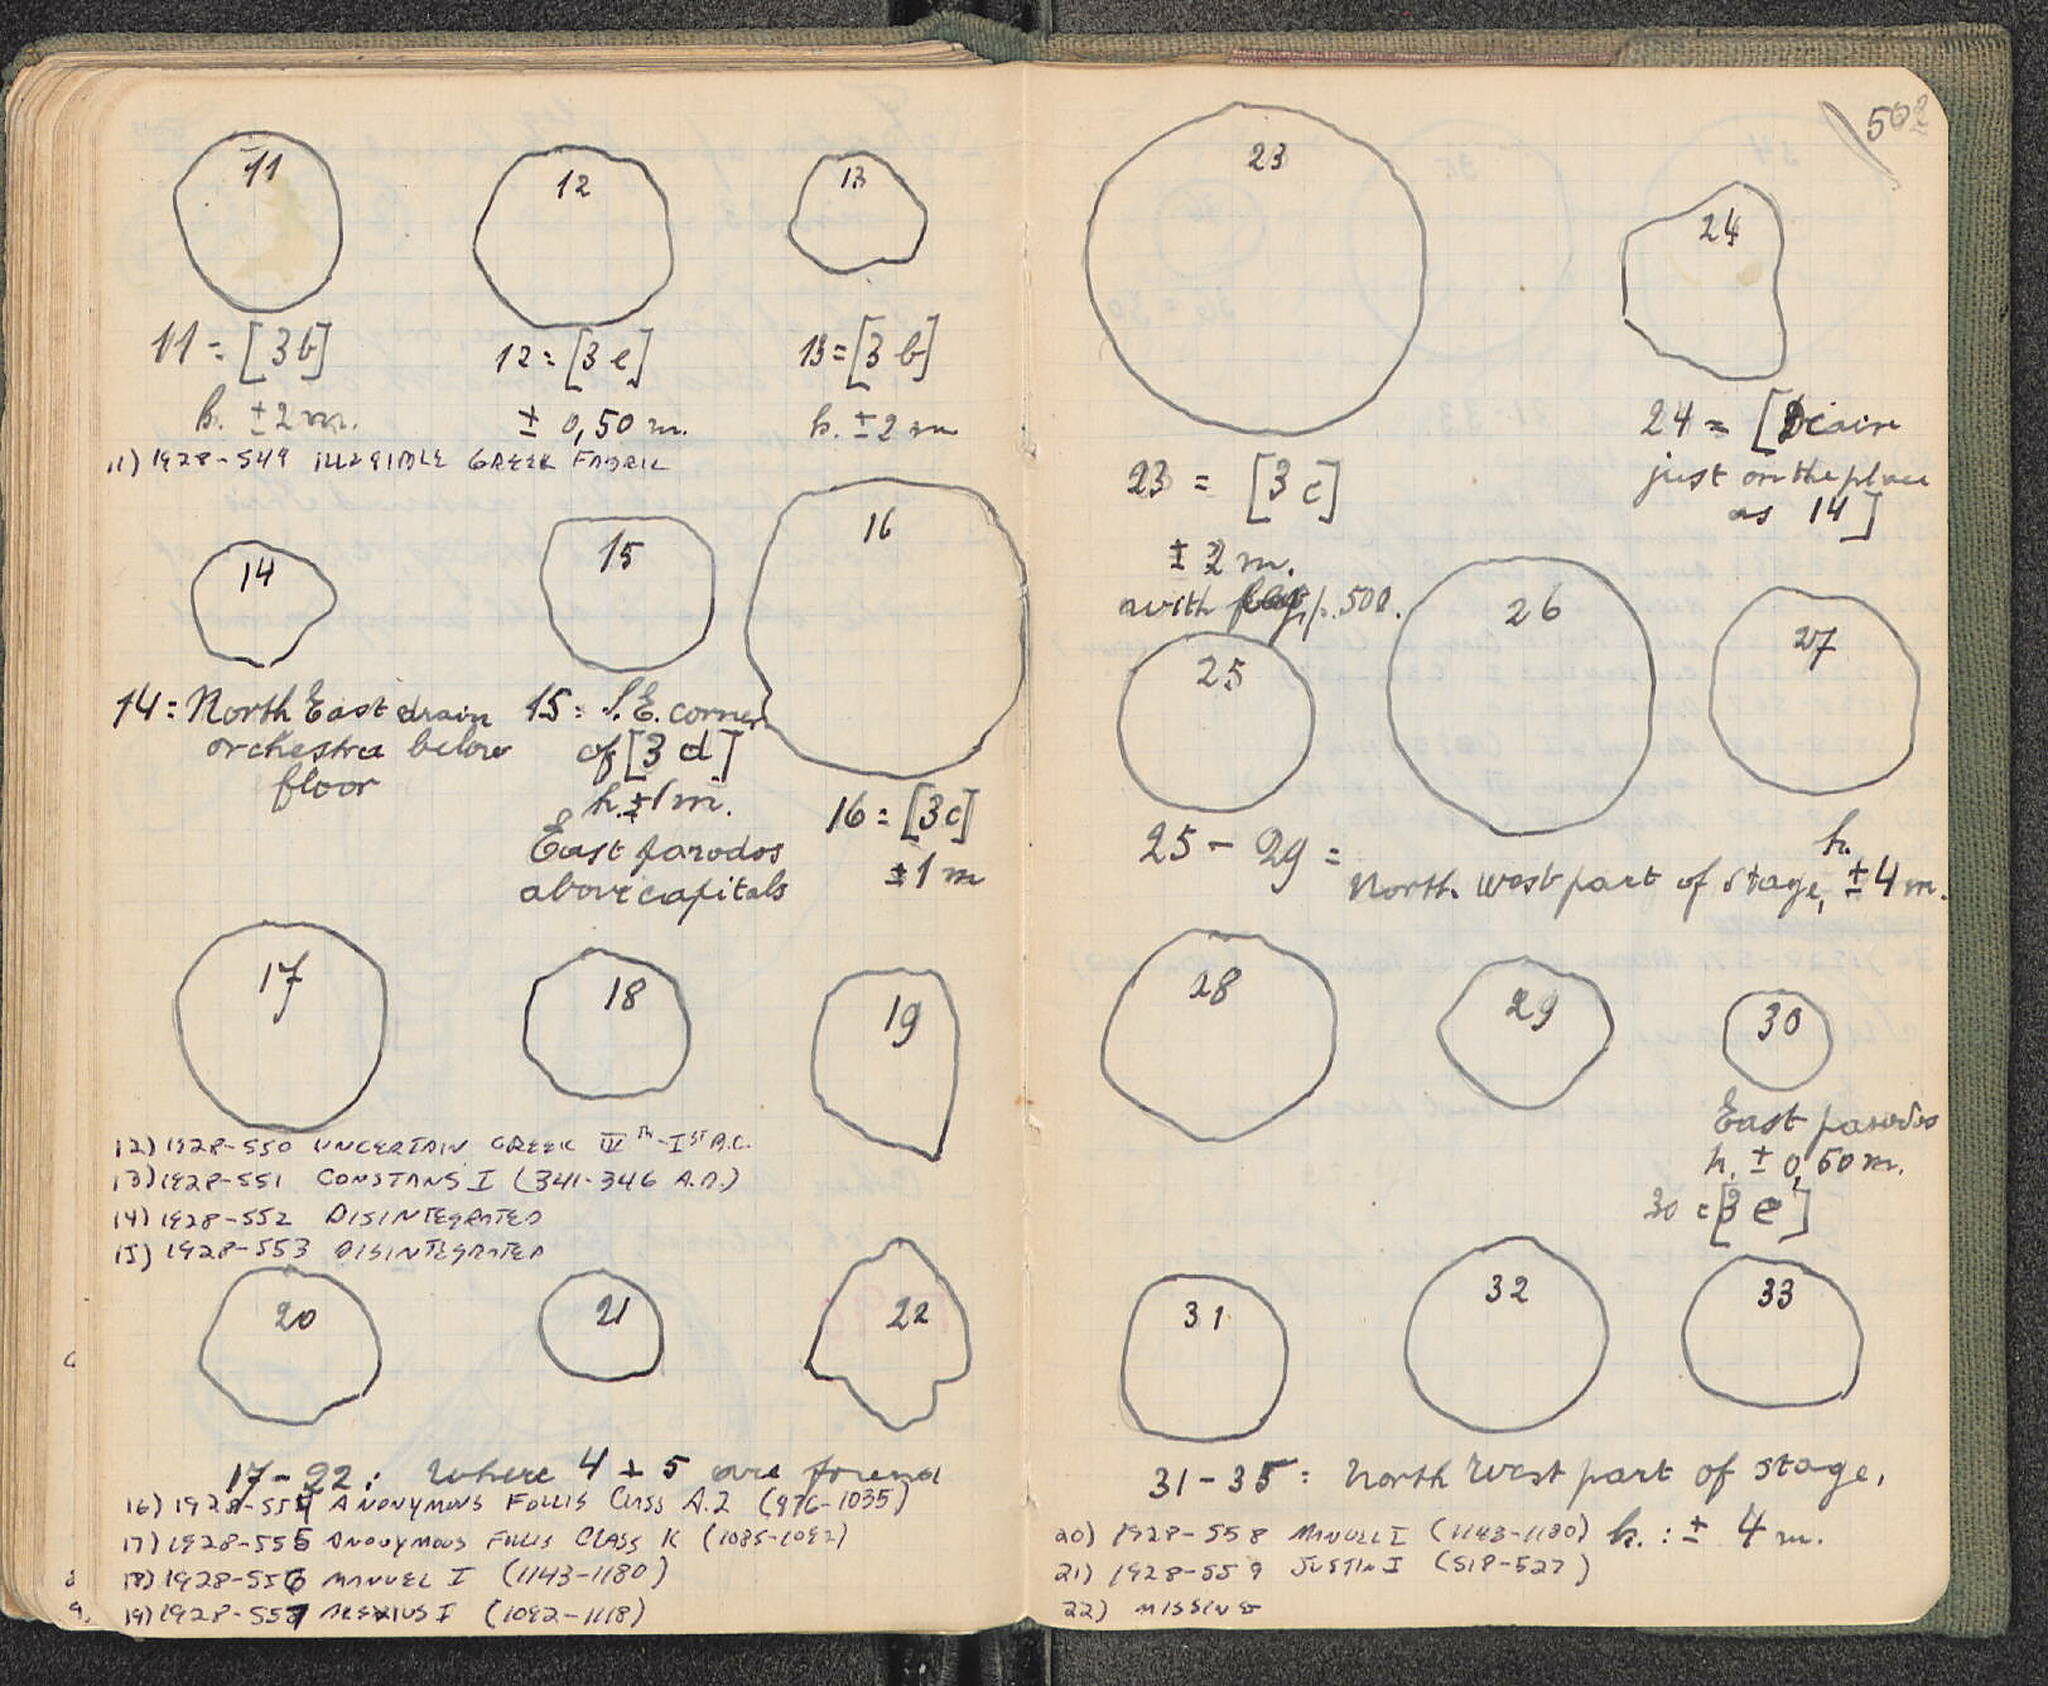 11
12
13
11 = [3b]
h. ± 2 m.
12 = [3 e]
± 0,50 m.
13 = [3 b]
h. ± 2 m
11) 1928-549 ILLEGIBLE GREEK FABRIC
14
15
16
14 = North East drain
orchestra below
floor
15 = S.E. corner
of [3 d]
h. ± 1 m.
East parodos
above capitals
16 = [3c]
± 1 m
17
18
19
12) 1928-550 UNCERTAIN GREEK IVTH-IST B.C.
13) 1928-551 CONSTANS I (341-346 A.D.)
14) 1928-552 DISINTEGRATED
15) 1928-553 DISINTEGRATED
20
21
22
17-22: Where 4 + 5 are found
16) 1928-554 ANONYMOUS FOLLIS CLASS A.2 (976-1035)
17) 1928-555 ANONYMOUS FOLLIS CLASS K (1085-1092)
18) 1928-556 MANUEL I (1143-1180)
19) 1928-557 ALEXIUS I (1092-1118)
502
23
24
23 = [3 c]
± 2 m.
with p. 500.
24 = [Drain
just on the place
as 14]
25
26
27
25 - 29 =
North West part of stage, h. ± 4 m.
28
29
30
East parodos
h. ± 0,50 m.
30 = [3 e]
31
32
33
31-35 = North West part of stage,
h. : ± 4 m.
20) 1928-558 MANUEL I (1143-1180)
21) 1928-559 JUSTIN I (518-527)
22) MISSING